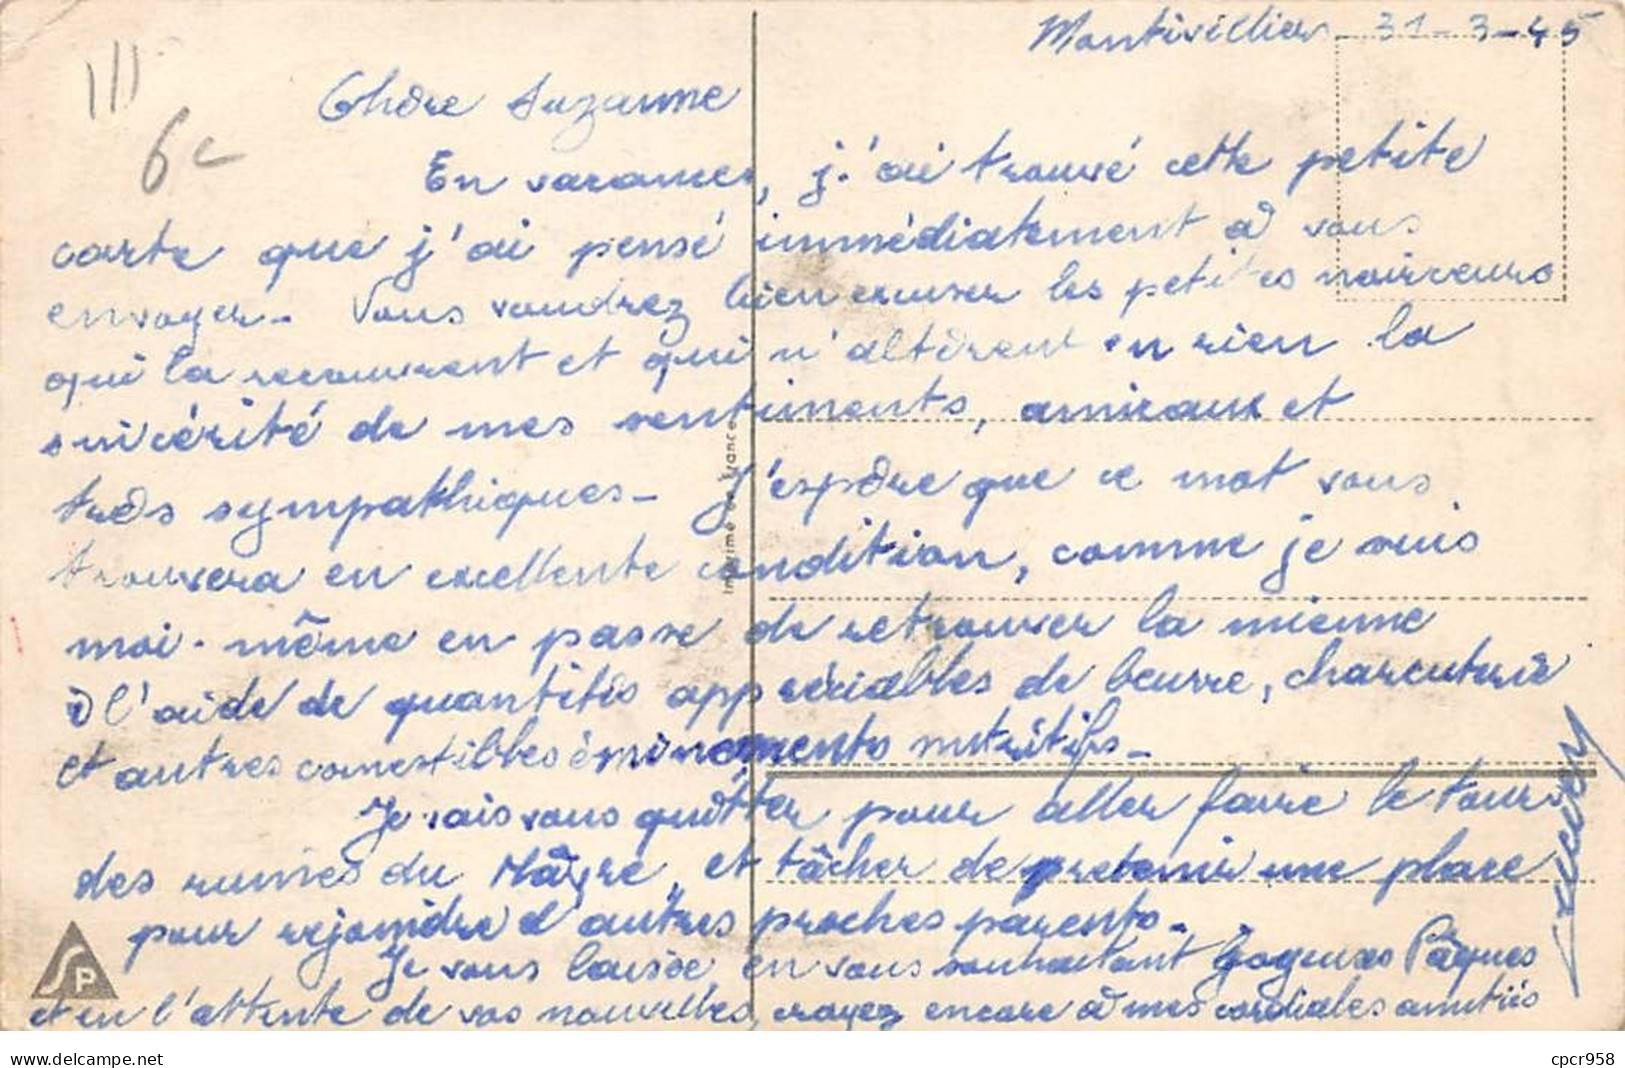 Montivilliers 31-3-45
6c
Chère Suzanne
En vacances, j'ai trouvé cette petite
carte que j'ai pensé immédiatement à vous
envoyer. Vous voudrez bien excuser les petites noirceurs
qui la recouvrent et qui n'altèrent en rien la
sincérité de mes sentiments, amicaux et
très sympathiques. J'espère que ce mot vous
trouvera en excellente condition, comme je suis
moi-même en passe de retrouver la mienne
à l'aide de quantités appréciables de beurre, charcuterie
et autres comestibles éminemments nutritifs.
Je vais vous quitter pour aller faire le tour
des ruines du Hâvre, et tâcher de retenir une place
pour rejoindre d'autres proches parents.
Je vous laisse en vous souhaitant Joyeuses Pâques
et en l'attente de vos nouvelles, croyez encore à mes cordiales amitiés
Imprimé en France
SP
cpcr958